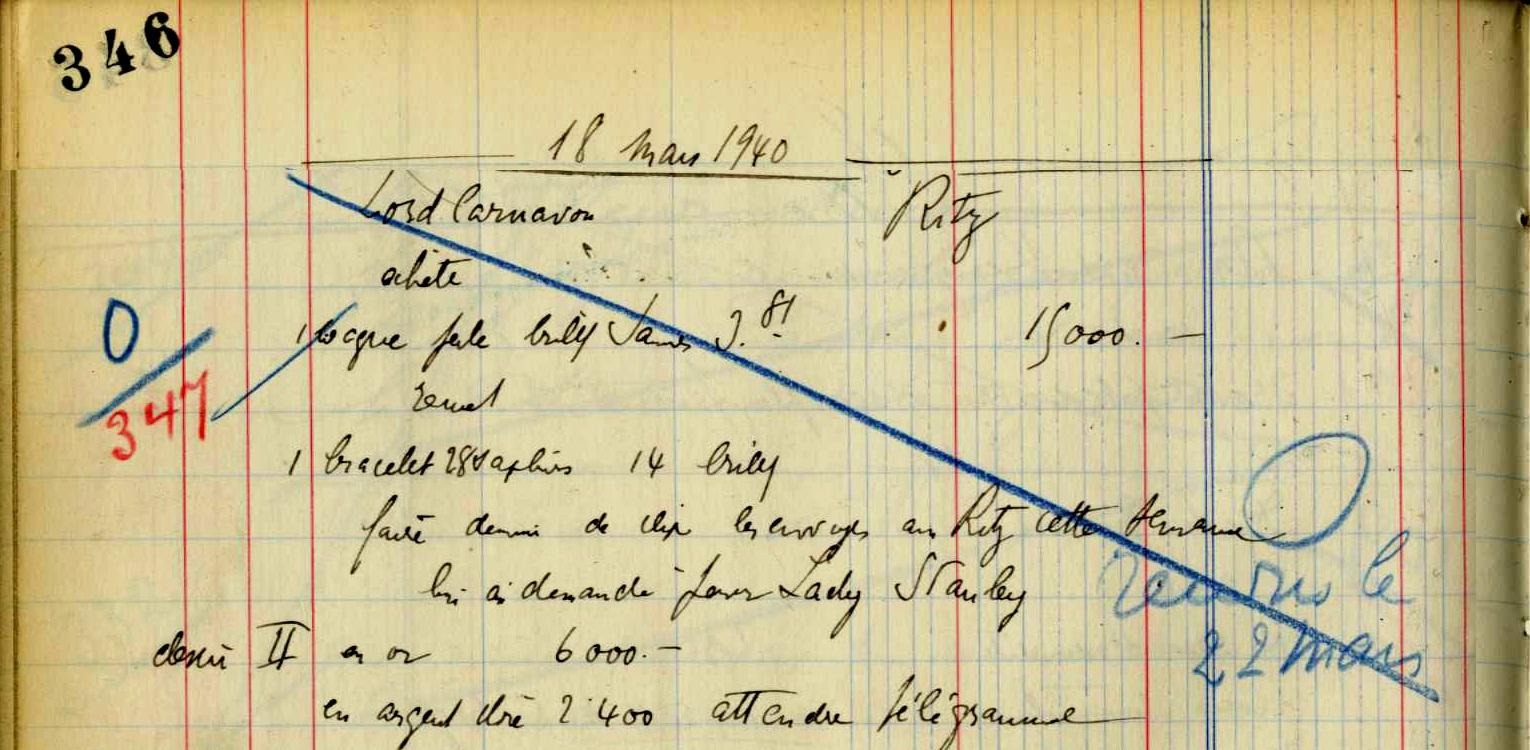 346
18 mars 1940
Lord Carnavon Ritz
achète
0
1 bague perle brill 15000. —
347
remet
1 bracelet 28 saphirs 14 brill
faire dessin de clip les envoyer au Ritz cette semaine
lui ai demandé pour Lady Stanley
rendus le
22 mars
dessin II en or 6000. —
en argent doré 2400 attendre télégramme